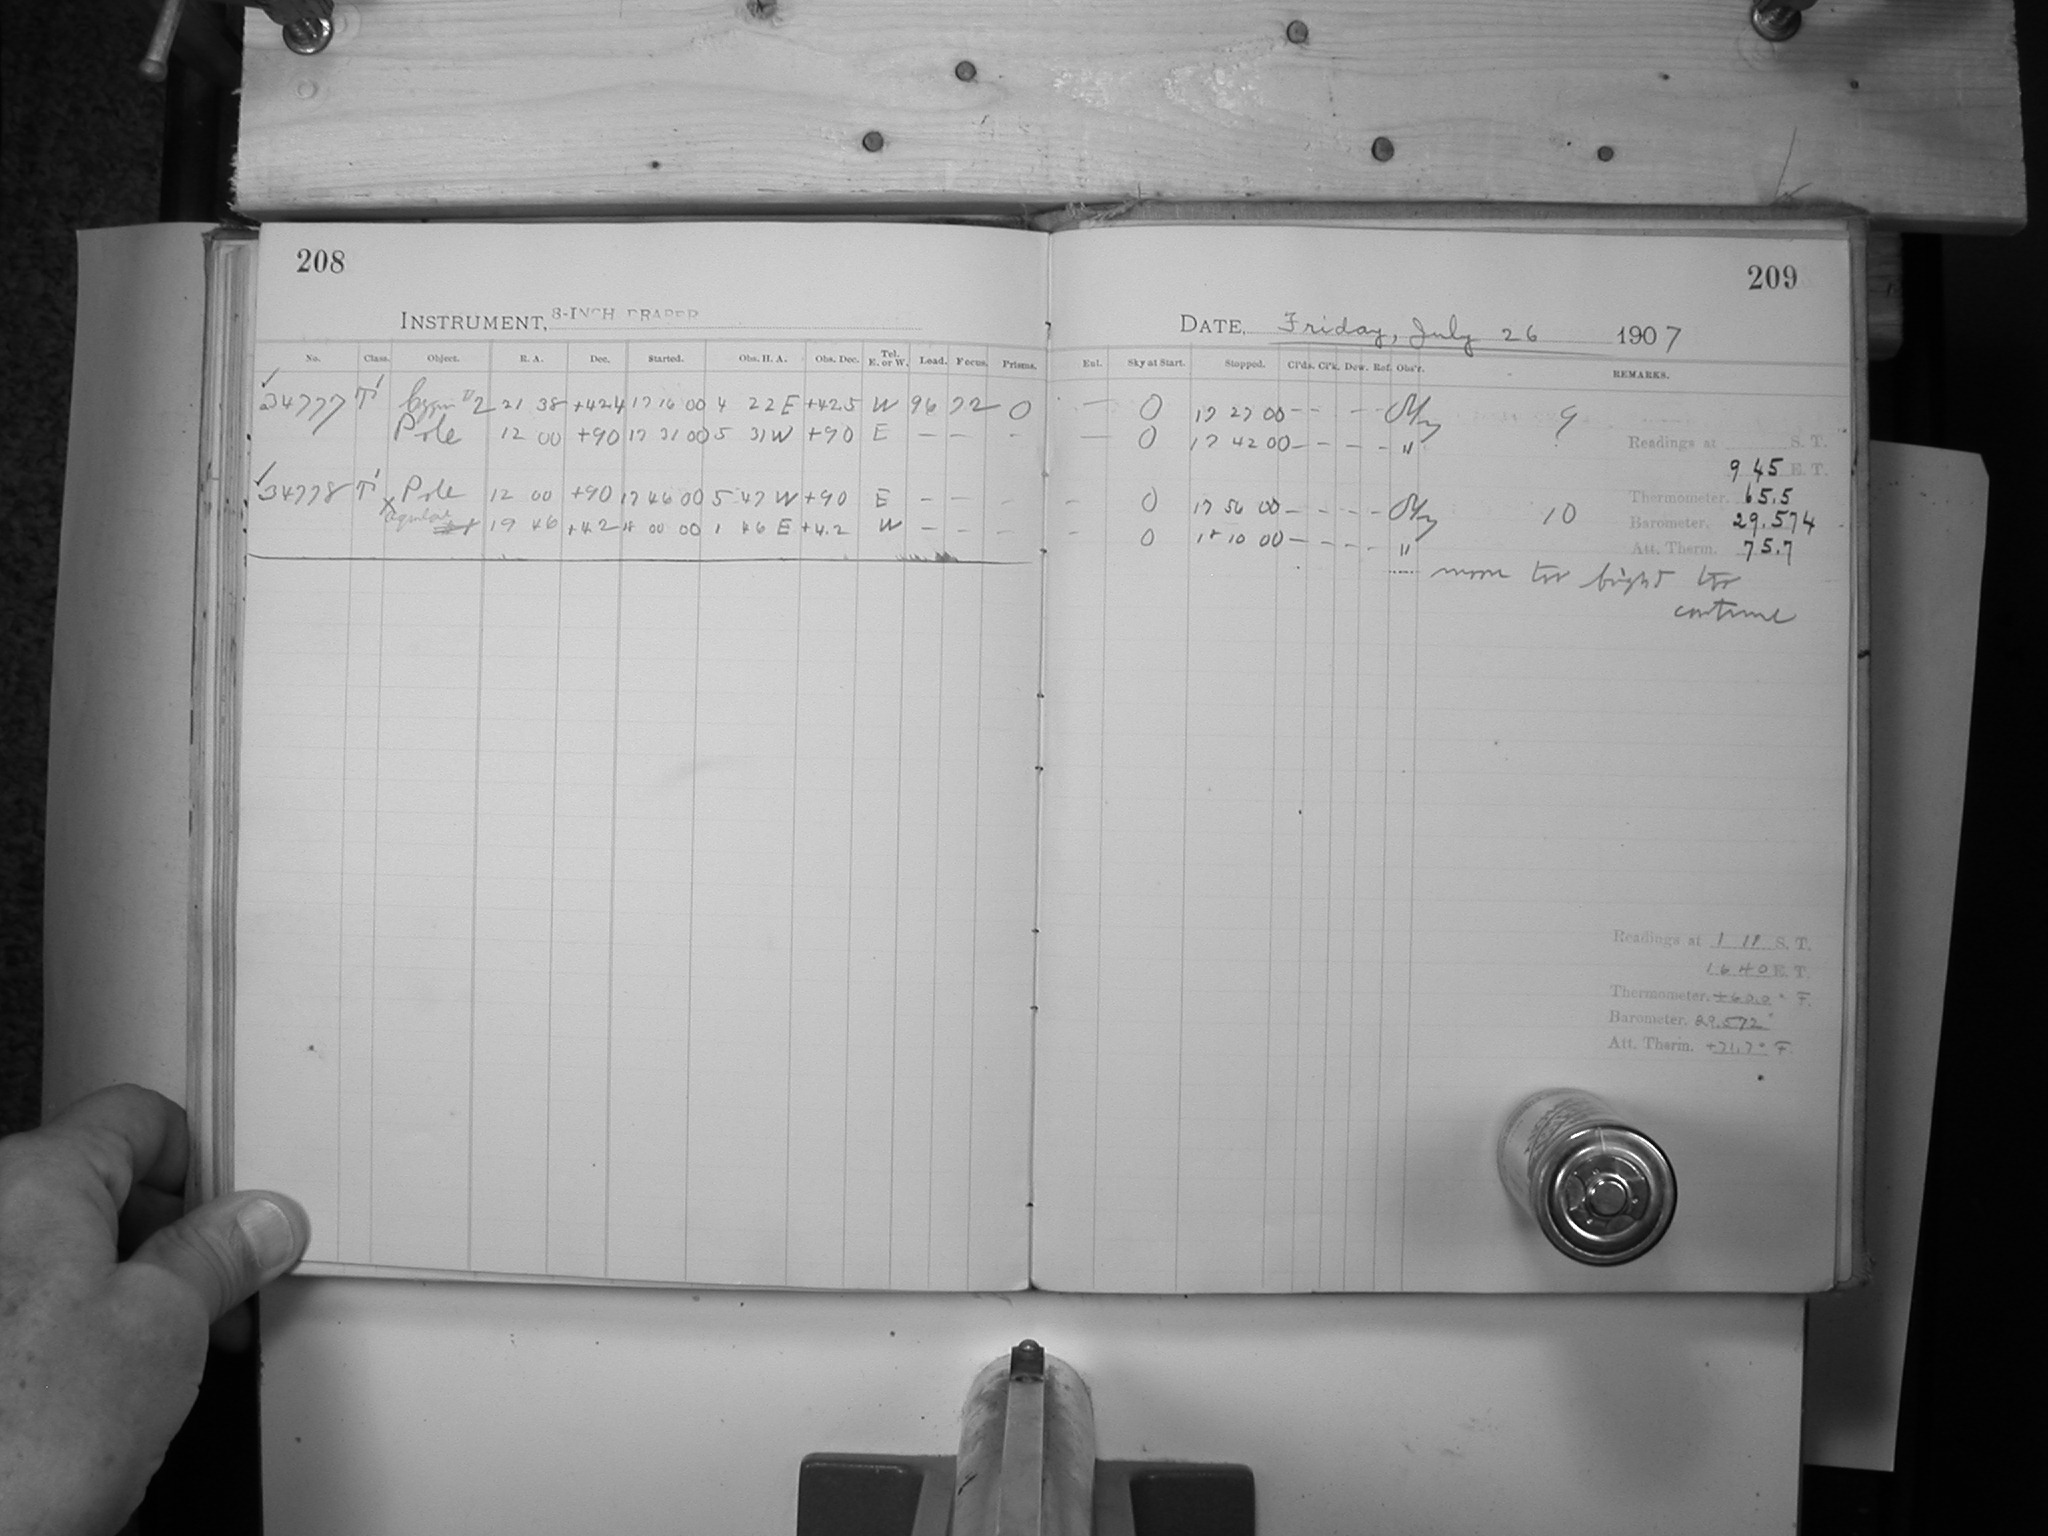 208
INSTRUMENT, 8-INCH DRAPER
No. Class. Object. R. A. Dec. Started. Obs. H. A. Obs. Dec. Tel. E. or W. Load. Focus. Prisms.
34777 T' 2 21 38 +42.4 17 16 00 4 22 E +42.5 W 96 72 0
Pole 12 00 +90 17 31 00 5 31 W +90 E – – -
34778 T' Pole 12 00 +90 17 46 00 5 47 W +90 E - - -
Aquilae 19 46 +4.2 18 00 00 1 46 E +4.2 W - - -
209
DATE, Friday, July 26 1907
Eul. Sky at Start. Stopped. Cl'ds. Cl'k. Dew. Ref. Obs'r. REMARKS.
— 0 17 27 00 - - - - 9
— 0 17 42 00 - - - - "
Readings at S. T.
9 45 E. T.
- 0 17 56 00 - - - - 10
Thermometer. 65.5
Barometer. 29.574
- 0 18 10 00 - - - - "
Att. Therm. 75.7
moon too bright to
continue
Readings at 1 18 S. T.
16 40 E. T.
Thermometer. +60.0° F.
Barometer. 29.572
Att. Therm. +71.7° F.